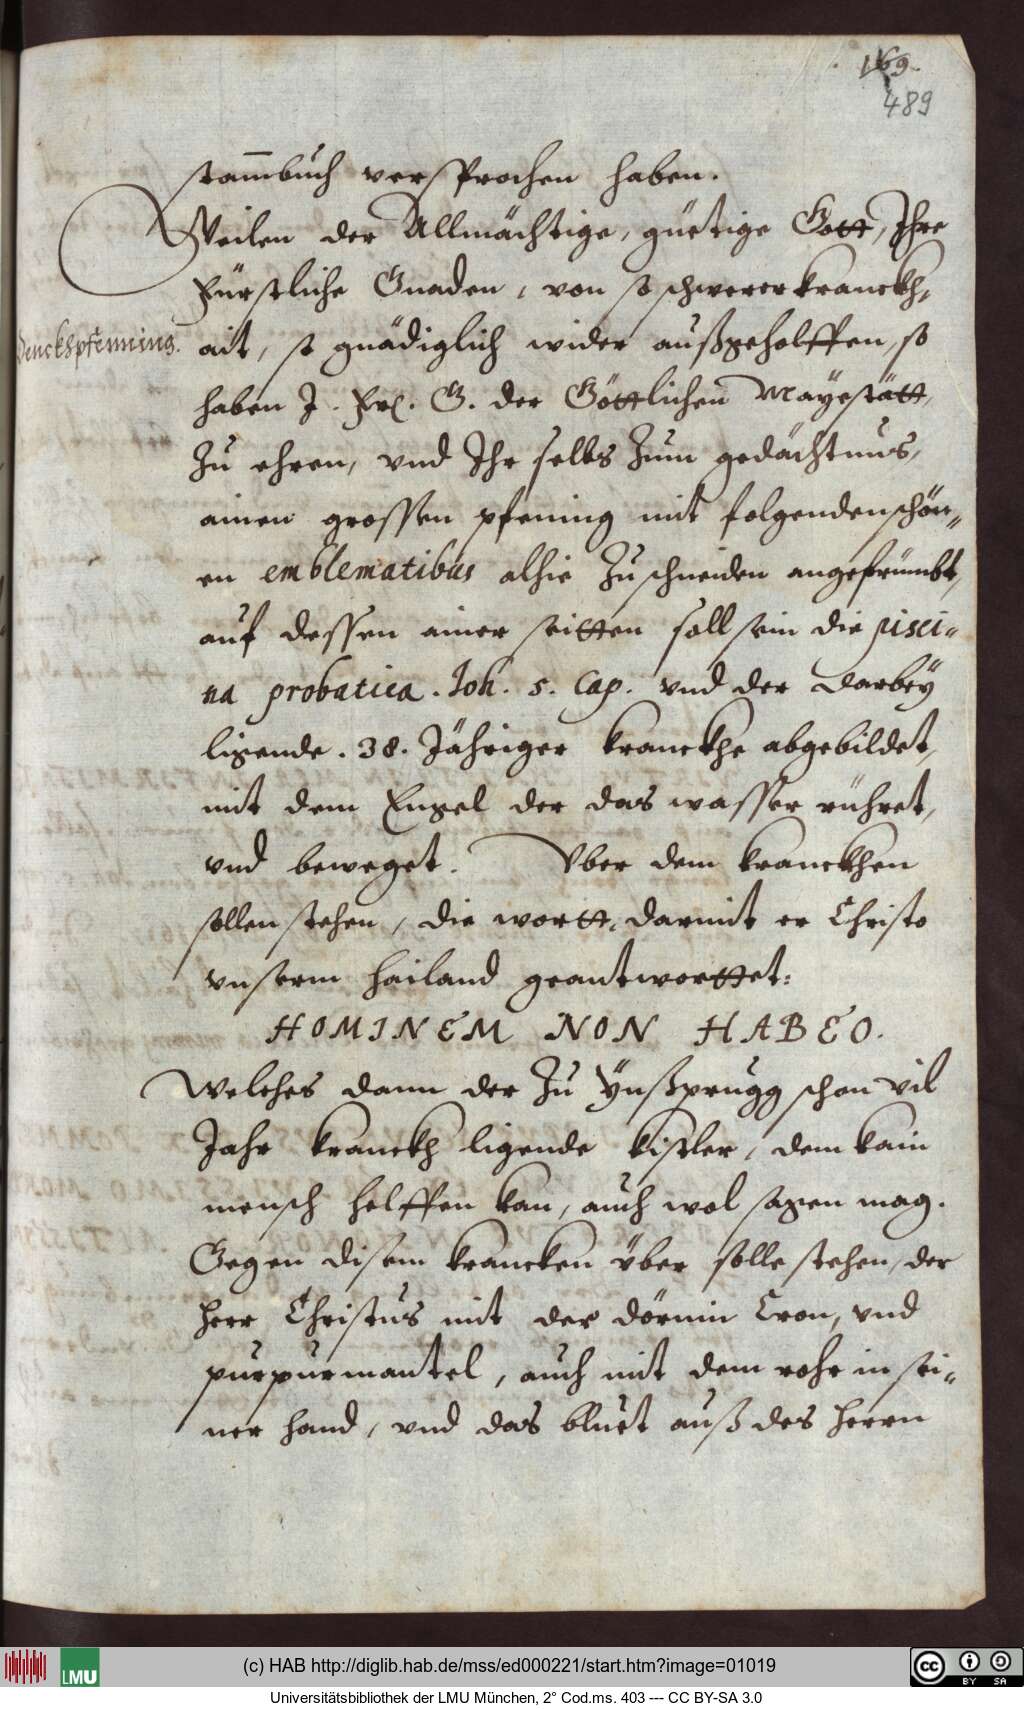 169.
489
stammbuch versprochen haben.
Weilen der Allmächtige, güetige Gott, Ihre
Fürstliche Gnaden, von so schwerer kranckh,
ait, so gnädiglich wider außgeholffen, so
Denckhpfenning.
haben I. Frl. G. der Göttlichen Mayestätt,
Zu ehren, vnd Ihr selbs Zum gedächtnus,
ainen grossen pfening mit folgenden schön„
en emblematibus alhie Zu schneiden angefrümbt,
auf dessen ainer seitten soll sein die pisci„
na probatica. Joh. 5. Cap. vnd der darbeÿ
ligende. 38. Jähriger kranckhe abgebildet,
mit dem Engel der das wasser rühret,
vnd beweget. Vber dem kranckhen
sollen stehen, die wortt, darmit er Christo
vnserm hailand geantworttet:
HOMINEM NON HABEO.
Welches dann der Zu Ÿnßprugg schon vil
Jahr kranckh ligende kistler, dem kain
mensch helffen kan, auch wol sagen mag.
Gegen disem krancken über solle stehen, der
herr Christus mit der dörnin Cron, vnd
purpurmantel, auch mit dem rohr in sei„
ner hand, vnd das bluet auß des herrn
LMU
(c) HAB http://diglib.hab.de/mss/ed000221/start.htm?image=01019
cc BY SA
Universitätsbibliothek der LMU München, 2° Cod.ms. 403 --- CC BY-SA 3.0